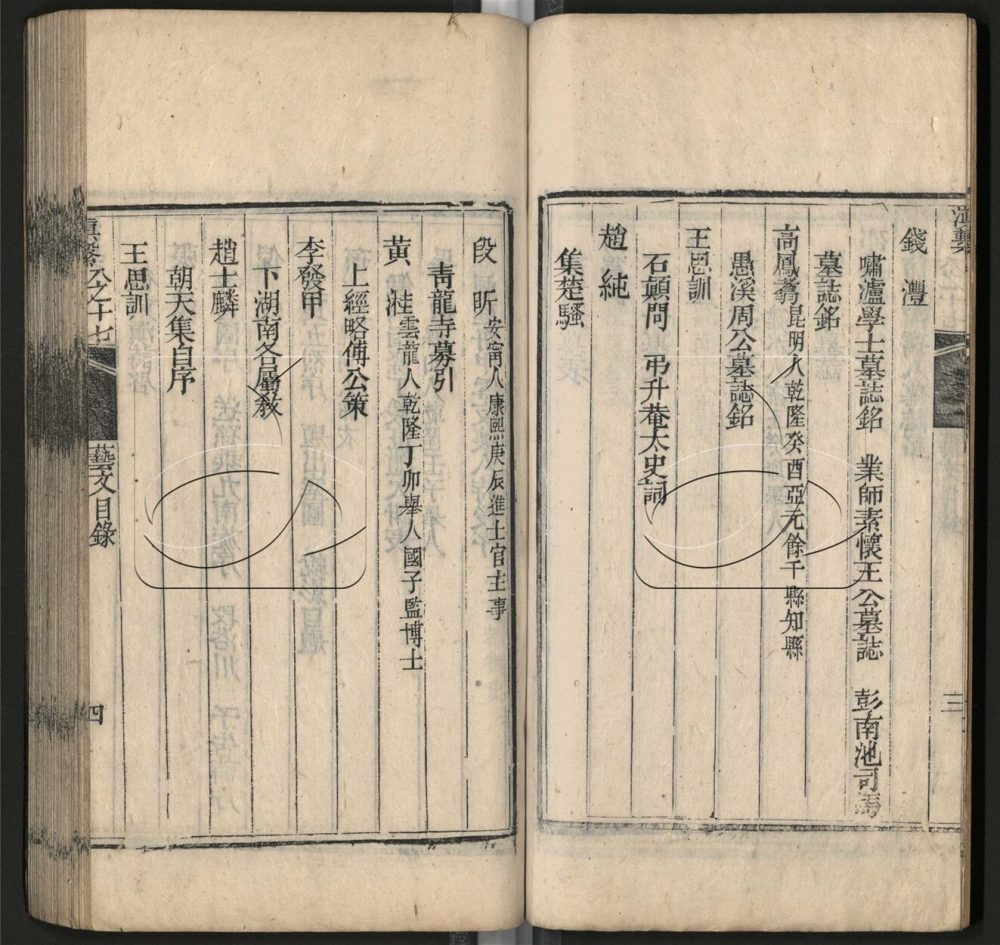 錢灃
嘯瀘學士墓誌銘 業師素懷王公墓誌 彭南池司馬
墓誌銘
高鳳翥 昆明人乾隆癸酉亞元餘干縣知縣
愚溪周公墓誌銘
王思訓
石顚問 弔升菴太史詞
趙純
集楚騷
三
段昕 安甯人康熙庚辰進士官主事
靑龍寺募引
黃洼 雲龍人乾隆丁卯舉人國子監博士
上經略傅公策
李發甲
下湖南各屬敎
趙士麟
朝天集自序
王思訓
滇繫 八之十七 藝文目錄 四